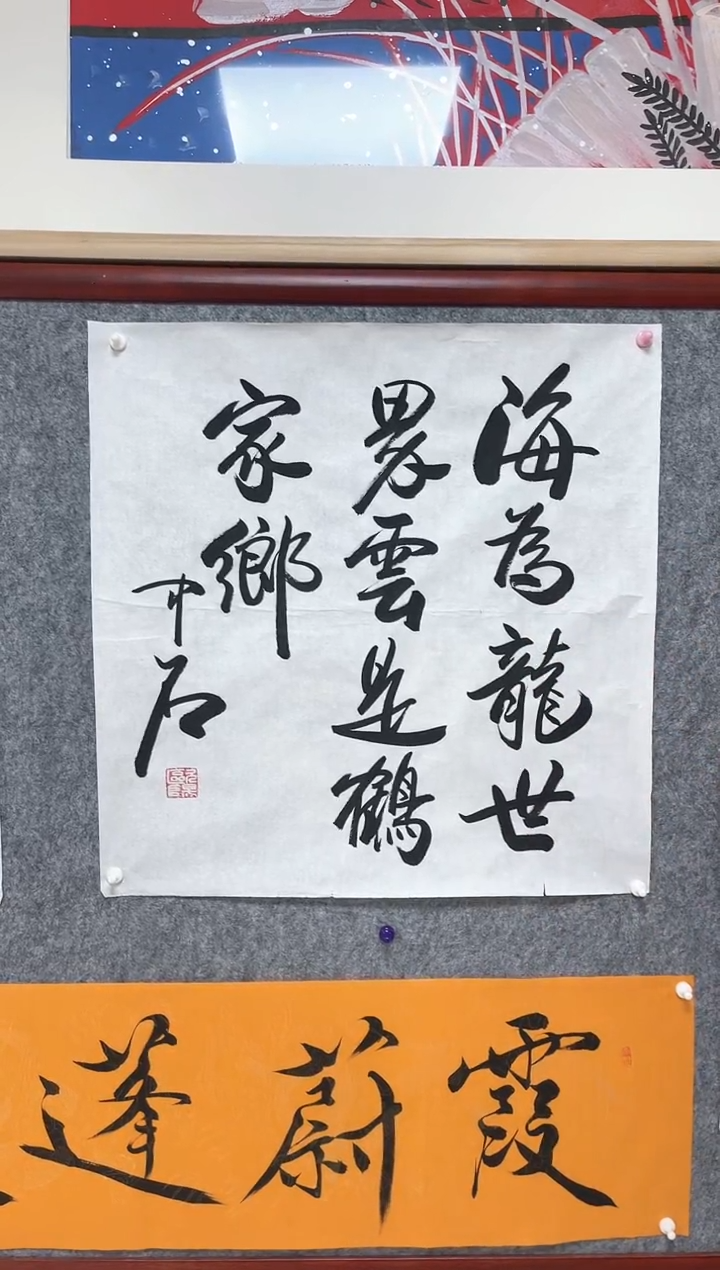 海為龍世
界雲是鶴
家鄉
中石
霞蔚蓬